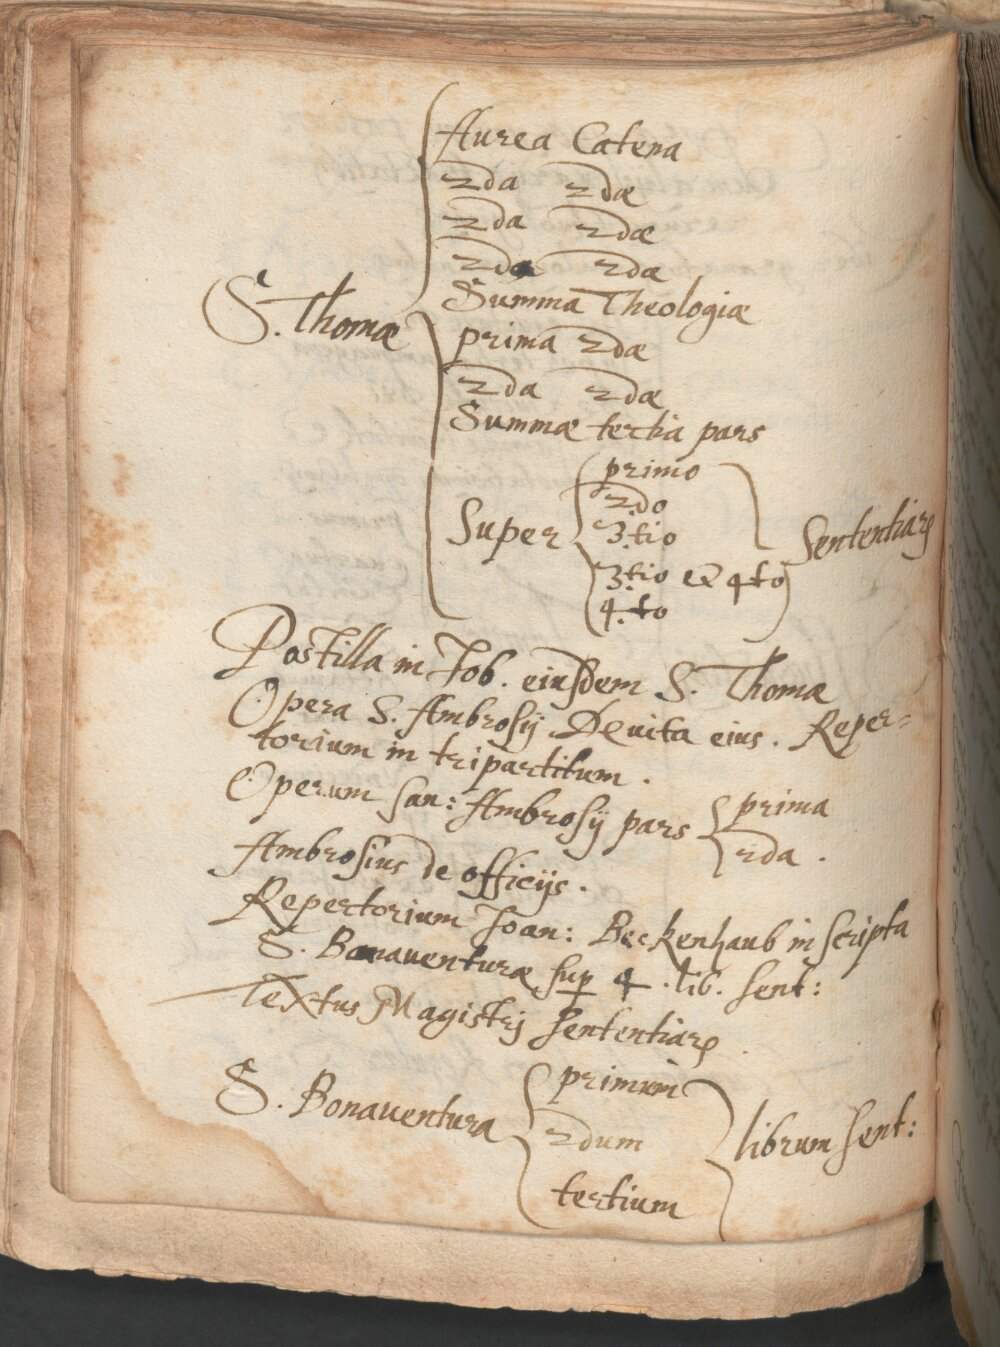 Aurea Catena
2da 2dæ
2da 2dæ
2da 2dæ
Summa Theologiæ
S. Thomæ
prima 2dæ
2da 2dæ
Summæ tertia pars
primo
2do
Super 3.tio Sententiarꝝ
3.tio et 4to
4.to
Postilla in Job. eiusdem S. Thomæ
Opera S. Ambrosij De vita eius. Reper=
torium in tripartitum.
Operum san: Ambrosij pars prima
2da.
Ambrosius de officijs.
Repertorium Joan: Beckenhaub in scripta
S. Bonauenturæ sup 4. lib. sent:
Textus Magistrj Sententiarꝝ
S. Bonauentura primum
2dum librum sent:
tertium